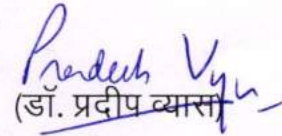 Pradeep Vyas
(डॉ. प्रदीप व्यास)